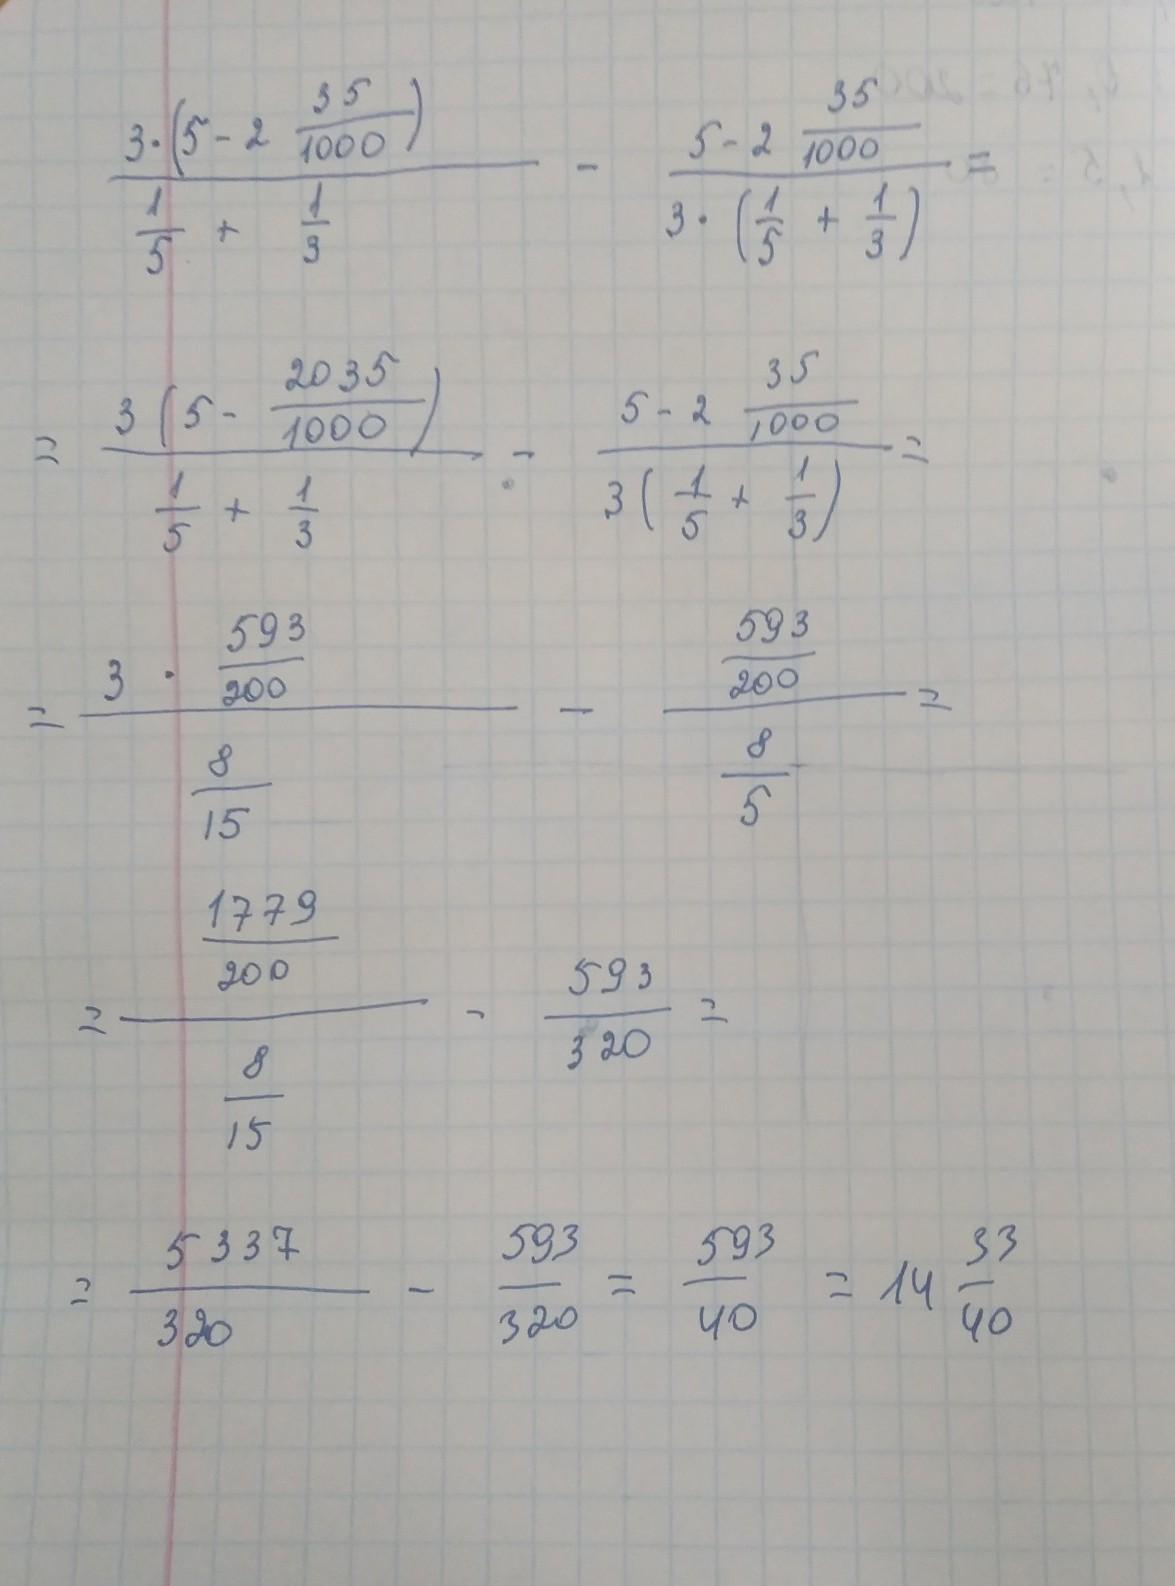 3·(5 - 2 35/1000) / (1/5 + 1/3) - (5 - 2 35/1000) / (3·(1/5 + 1/3)) =
= 3(5 - 2035/1000) / (1/5 + 1/3) - (5 - 2 35/1000) / (3(1/5 + 1/3)) =
= (3 · 593/200) / (8/15) - (593/200) / (8/5) =
= (1779/200) / (8/15) - 593/320 =
= 5337/320 - 593/320 = 593/40 = 14 33/40